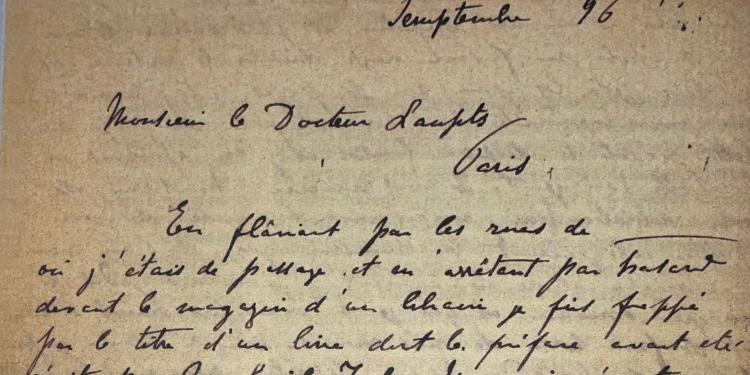 Semptembre 96
Monsieur le Docteur Laupts
Paris
En flânant par les rues de
où j'étais de passage et m'arrêtant par hasard
devant le magazin d'un libraire je fus frappé
par le titre d'un livre dont la préface avait été
par